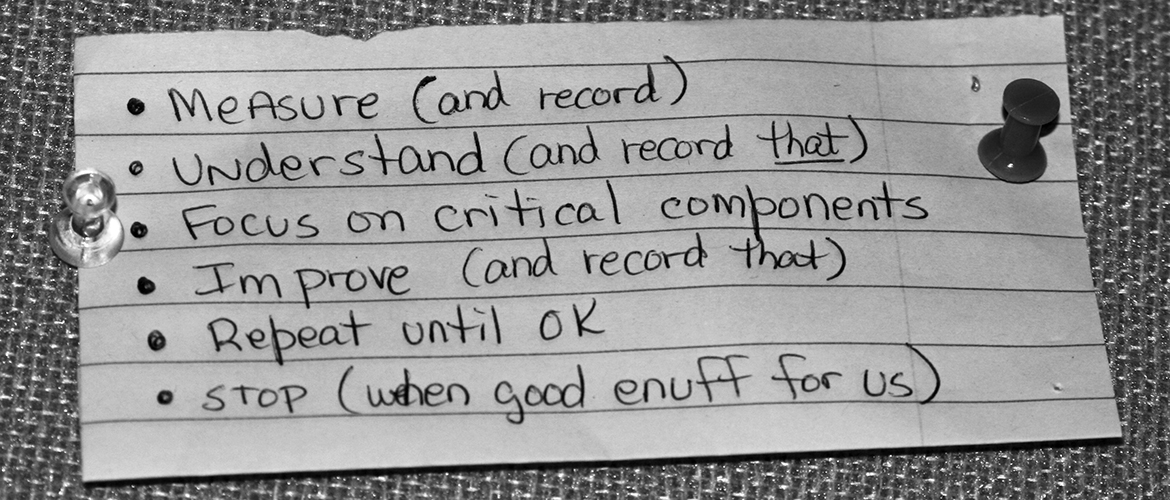 • Measure (and record)
• Understand (and record that)
• Focus on critical components
• Improve (and record that)
• Repeat until OK
• STOP (when good enuff for us)